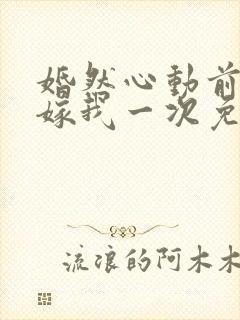 婚然心動前
嫁我一次免
流浪的阿木木